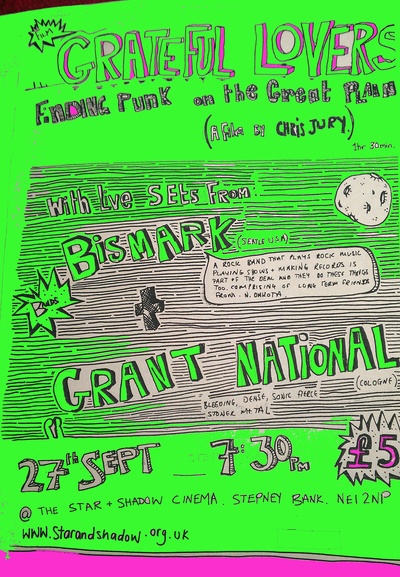 FILM
GRATEFUL LOVERS
ENDING PUNK on the Great PLAIN
(A FILM BY CHRIS JURY.)
1hr 30min.
With Live SETS From
BISMARK (SEATLE USA)
A ROCK BAND THAT PLAYS ROCK MUSIC
PLAYING SHOWS + MAKING RECORDS IS
PART OF THE DEAL AND THEY DO THESE THINGS
TOO. COMPRISING OF LONG TERM FRIENDS
FROM. N. DAKOTA.
BANDS
+
GRANT NATIONAL
(COLOGNE)
BLEEDING, DENSE, SONIC FIERCE
STONER METAL
27th SEPT _ 7:30PM £5
@ THE STAR + SHADOW CINEMA. STEPNEY BANK. NE1 2NP
WWW.Starandshadow.org.uk